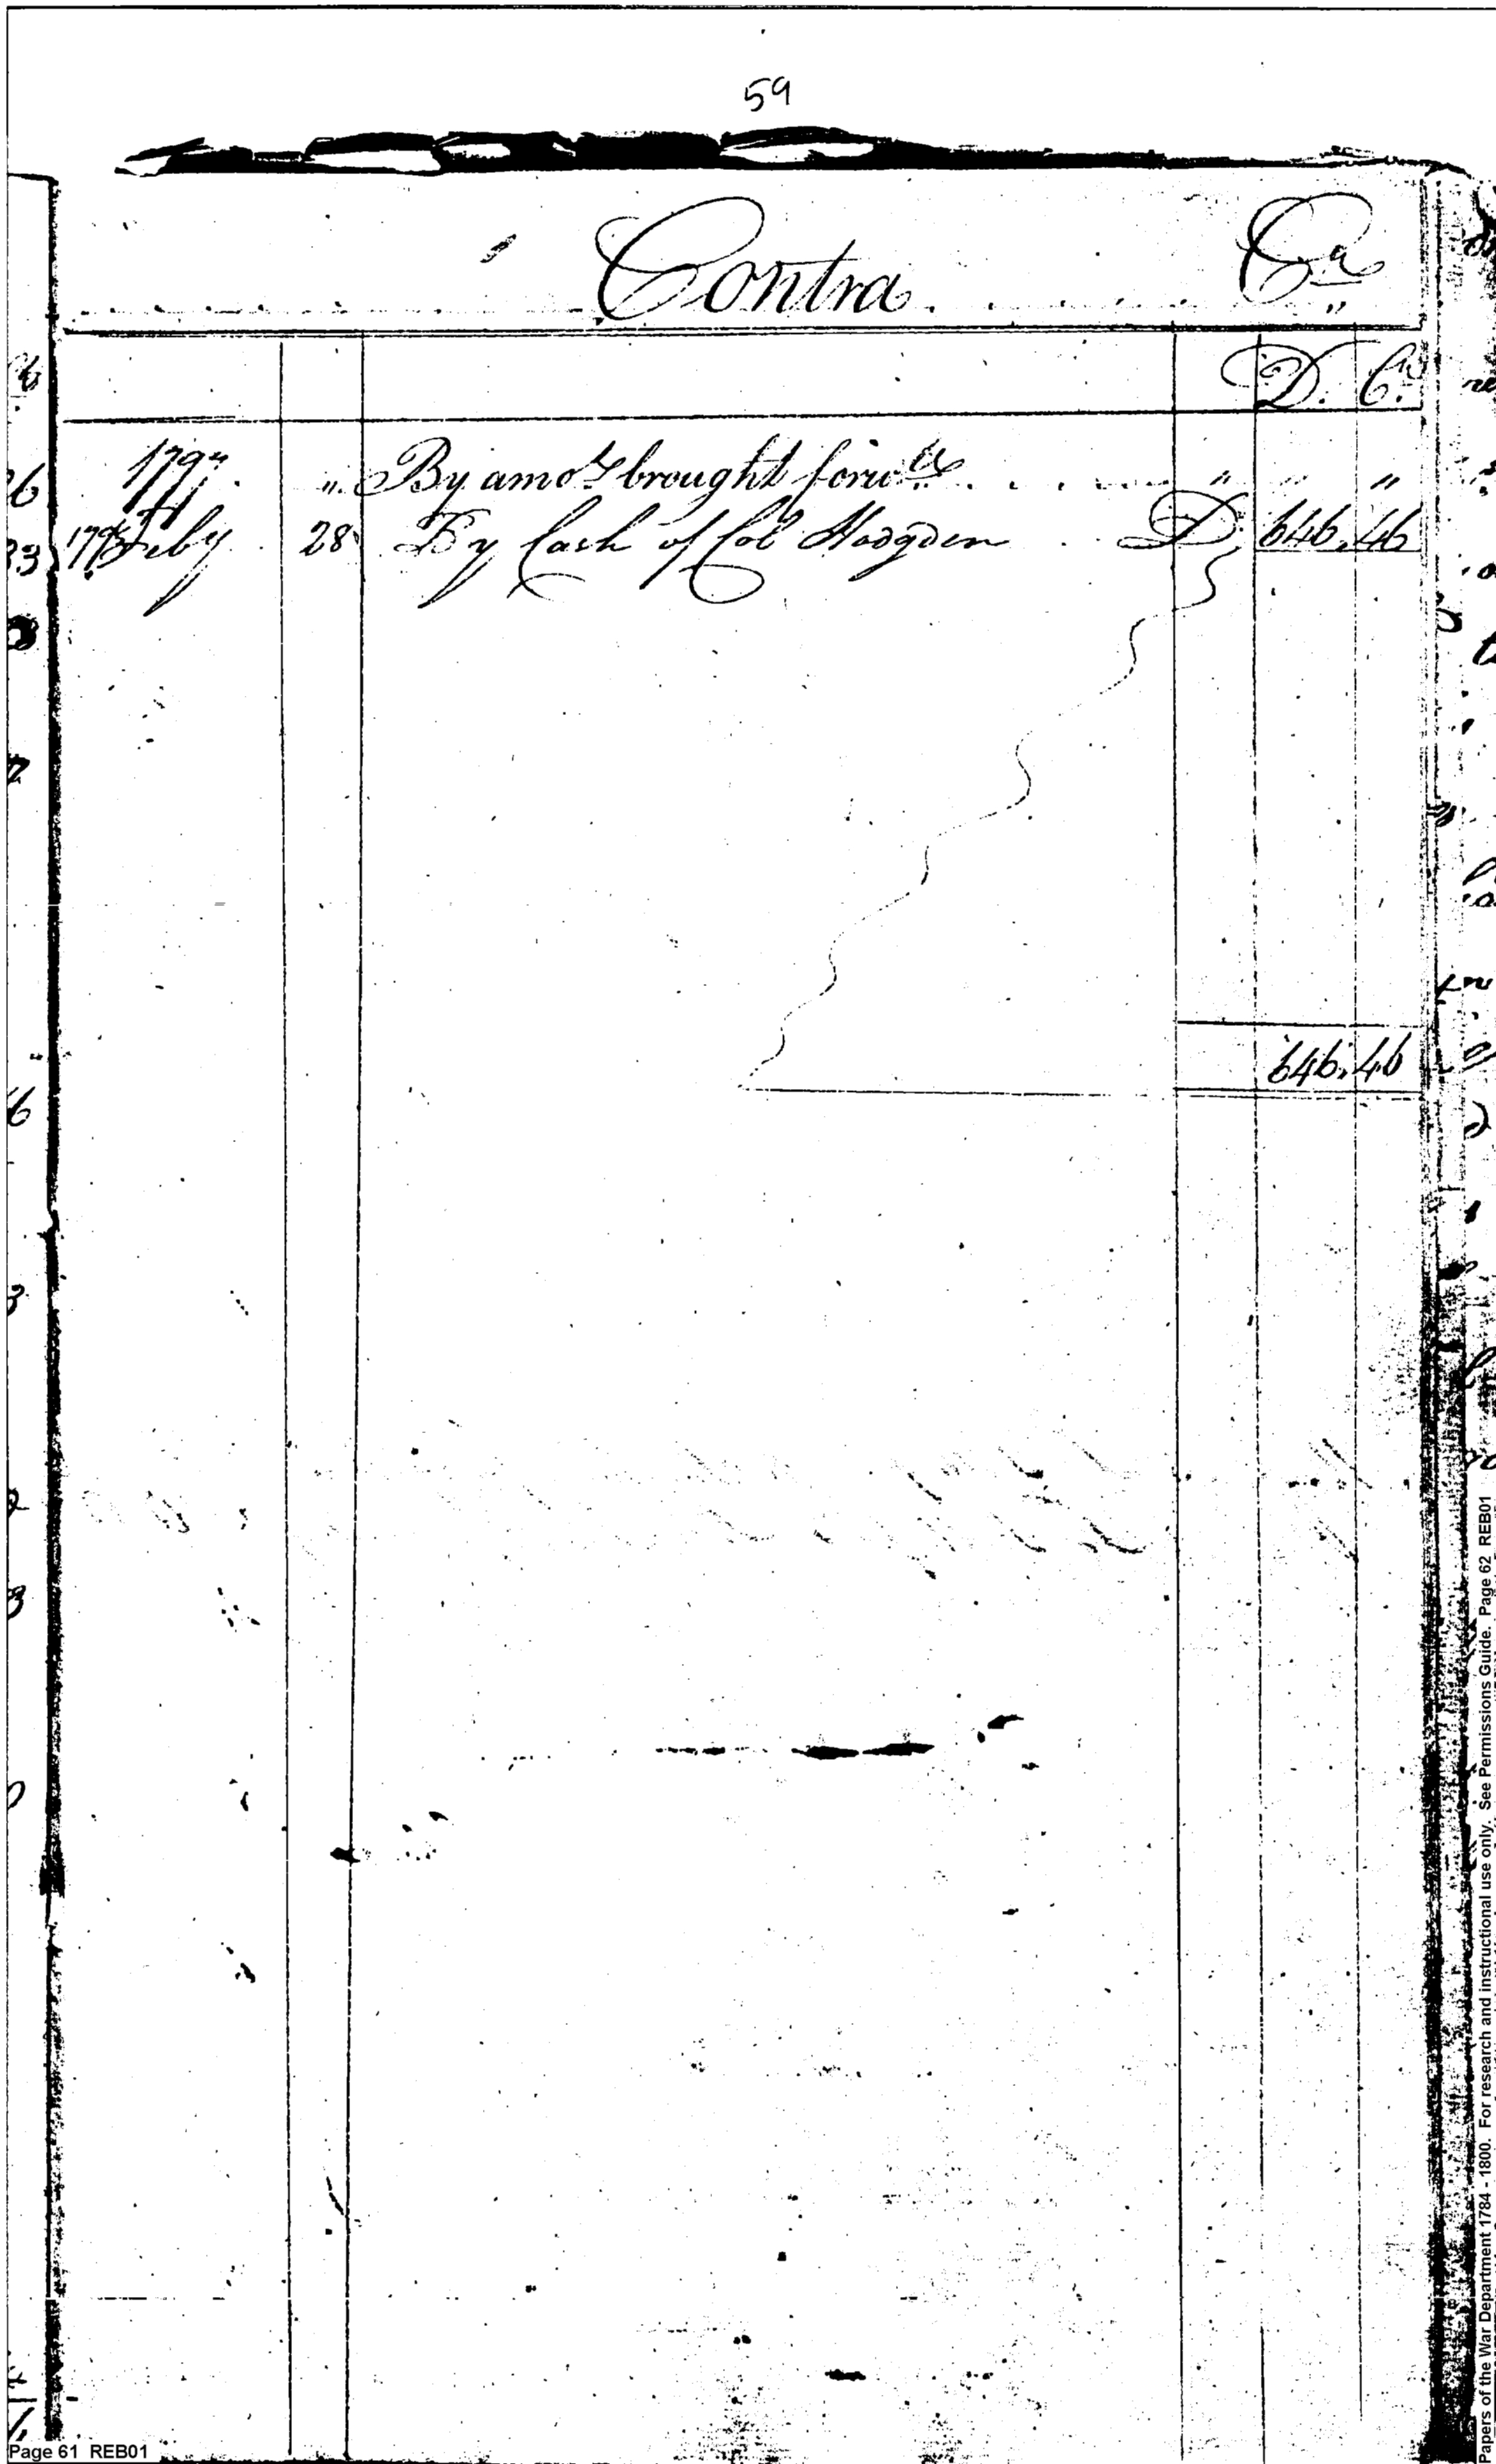 59
Contra Cr
D. Cts
179 " By amots brought forwd " " "
179 Feby 28 By Cash of Col Hodgden D 646.46
646.46
Page 61 REB01
Papers of the War Department 1784 - 1800. For research and instructional use only. See Permissions Guide. Page 62 REB01